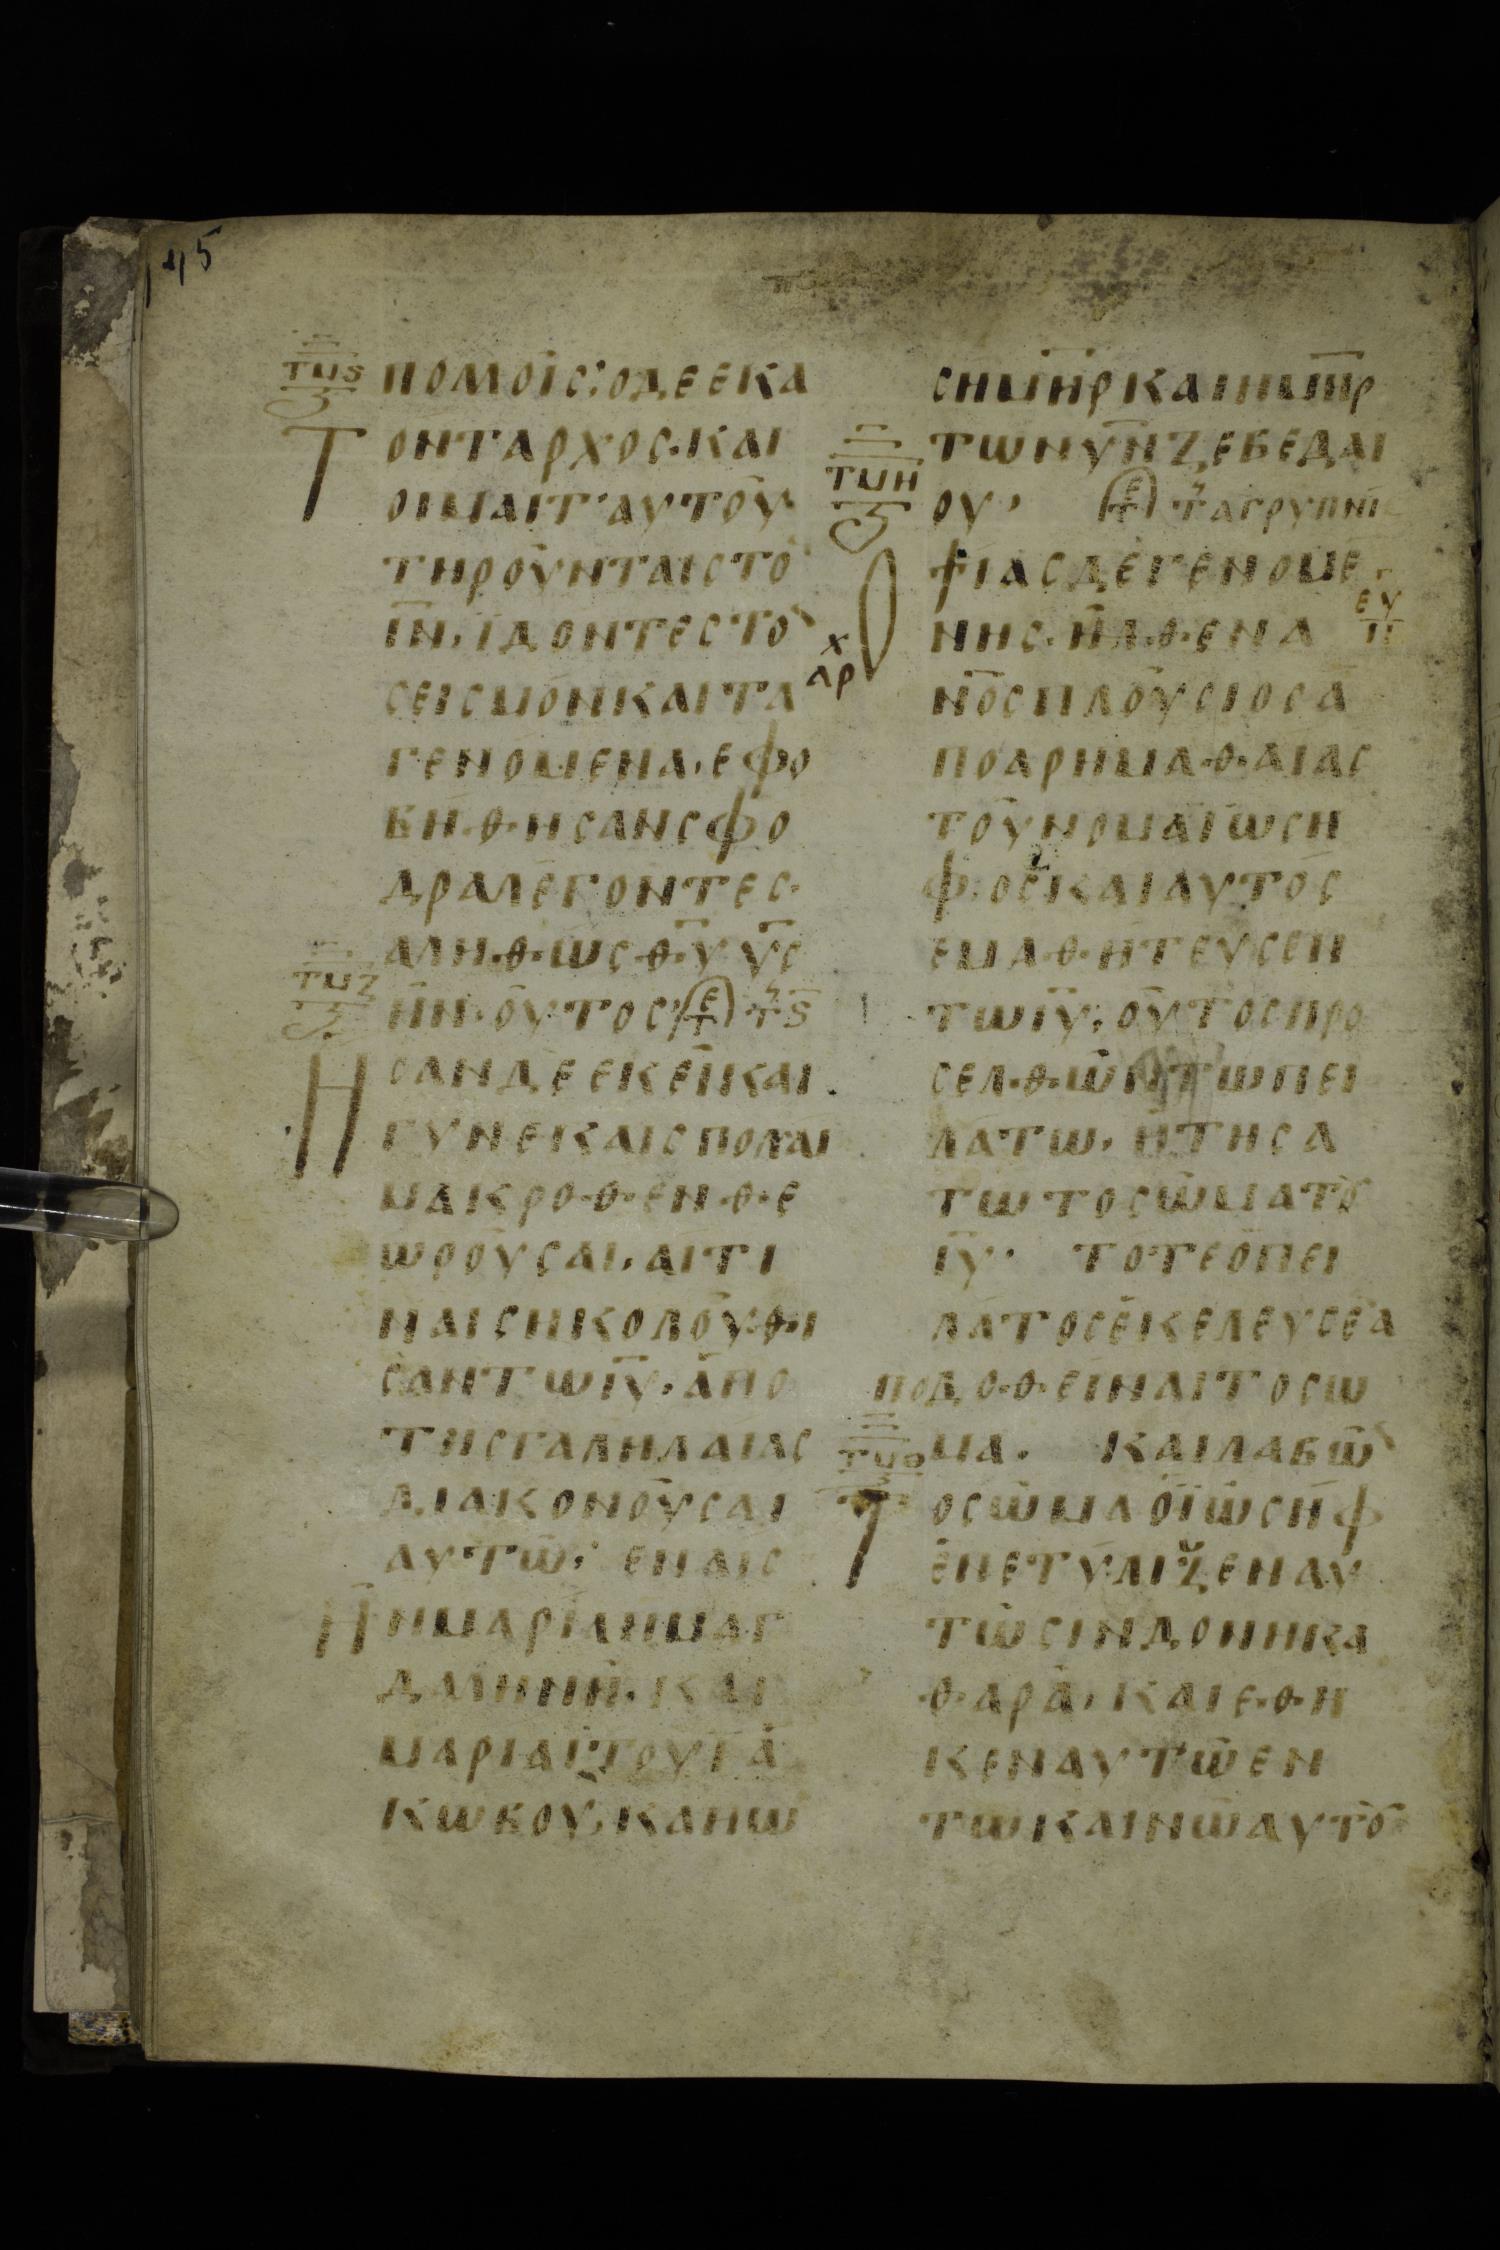 145
ΤΜϚ
ΠΟΜΟΙΣ: Ο ΔΕ ΕΚΑ
ΤΟΝΤΑΡΧΟΣ· ΚΑΙ
ΟΙ ΜΑΙΤ' ΑΥΤΟΥ
ΤΗΡΟΥΝΤΑΙΣ ΤΟ
ΙΝ, ΙΔΟΝΤΕΣ ΤΟ
ΣΕΙΣΜΟΝ ΚΑΙ ΤΑ
ΓΕΝΟΜΕΝΑ, ΕΦΟ
ΒΗΘΗΣΑΝ ΣΦΟ
ΔΡΑ ΛΕΓΟΝΤΕΣ·
ΑΛΗΘΩΣ ΘΥ ΥΣ
ΤΜΖ
ΗΝ ΟΥΤΟΣ·
ΗΣΑΝ ΔΕ ΕΚΕΙ ΚΑΙ
ΓΥΝΕΚΑΙΣ ΠΟΛΑΙ
ΜΑΚΡΟΘΕΝ ΘΕ
ΩΡΟΥΣΑΙ, ΑΙΤΙ
ΝΑΙΣ ΗΚΟΛΟΥΘΙ
ΣΑΝ ΤΩ ΙΥ, ΑΠΟ
ΤΗΣ ΓΑΛΗΛΑΙΑΣ
ΔΙΑΚΟΝΟΥΣΑΙ
ΑΥΤΩ· ΕΝ ΑΙΣ
ΗΝ ΜΑΡΙΑ Η ΜΑΓ
ΔΑΛΗΝΗ, ΚΑΙ
ΜΑΡΙΑ Ι ΤΟΥ ΙΑ
ΚΩΒΟΥ, ΚΑΙ ΙΩ
ΣΗ ΜΗΡ ΚΑΙ Η ΜΗΡ
ΤΩΝ ΥΝ ΖΕΒΕΔΑΙ
ΤΜΗ
ΟΥ, ΑΓΡΥΠΝΙ
ΟΨΙΑΣ ΔΕ ΓΕΝΟΜΕ
ΝΗΣ· ΗΛΘΕΝ Α
ΑΡΧ
ΝΟΣ ΠΛΟΥΣΙΟΣ Α
ΠΟ ΑΡΗΜΑΘΑΙΑΣ
ΤΟΥΝΟΜΑ ΙΩΣΗ
Φ· ΟΣ ΚΑΙ ΑΥΤΟΣ
ΕΜΑΘΗΤΕΥΣΕΝ
ΤΩ ΙΥ, ΟΥΤΟΣ ΠΡΟ
ΣΕΛΘΩΝ ΤΩ ΠΕΙ
ΛΑΤΩ, ΗΤΗΣΑ
ΤΩ ΤΟ ΣΩΜΑ ΤΟ
ΙΥ· ΤΟΤΕ Ο ΠΕΙ
ΛΑΤΟΣ ΕΚΕΛΕΥΣΕ Α
ΠΟΔΟΘΕΙΝΑΙ ΤΟ ΣΩ
ΤΜΘ
ΜΑ· ΚΑΙ ΛΑΒΩ
ΤΟ ΣΩΜΑ Ο ΙΩΣΗΦ
ΕΝΕΤΥΛΙΞΕΝ ΑΥ
ΤΩ ΣΙΝΔΟΝΗ ΚΑ
ΘΑΡΑ, ΚΑΙ ΕΘΗ
ΚΕΝ ΑΥΤΩ ΕΝ
ΤΩ ΚΑΙΝΩ ΑΥΤΟ